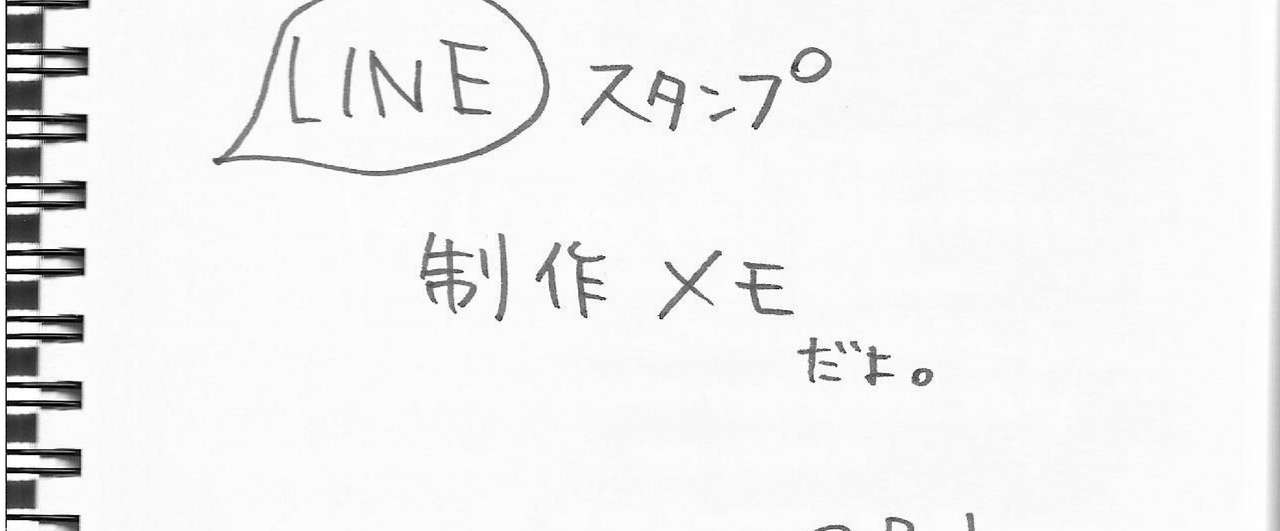 LINE スタンプ
制作 メモ
だよ。